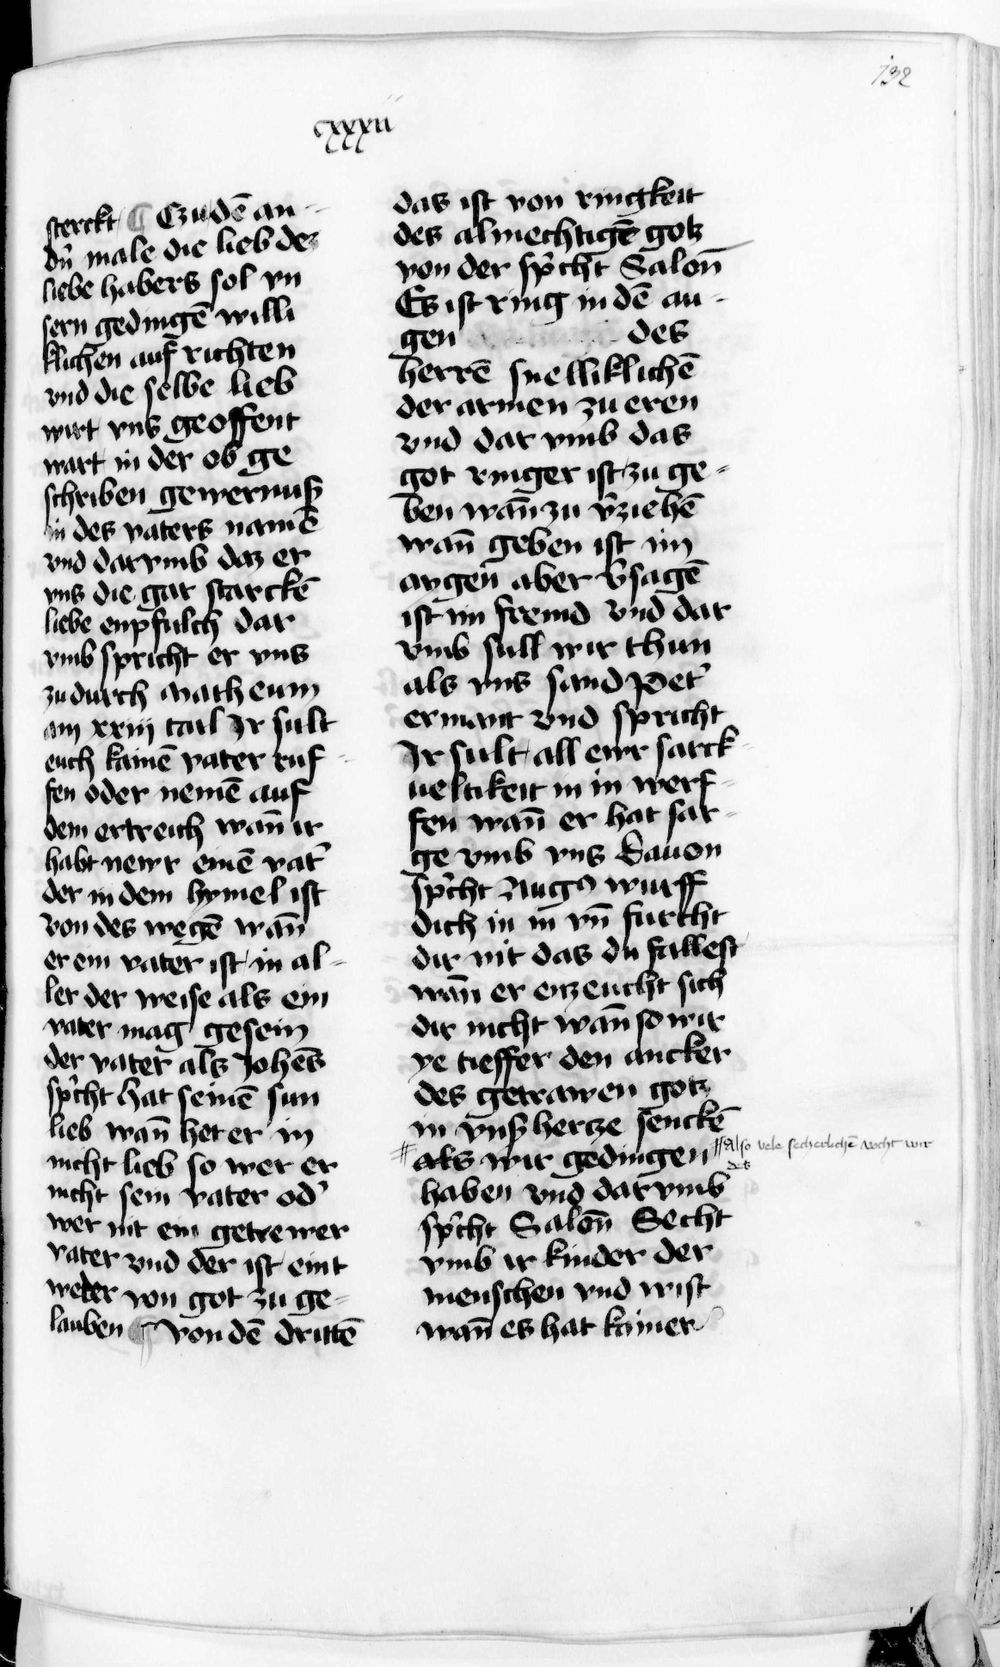 132
cxxxii
sterckt ¶ Czu dē an-
dn̄ male die lieb dez
liebe habers sol vn
sern gedingē willi
klichen auf richten
vnd die selbe lieb
wirt vns geoffent
wart in der ob ge
schriben gewernuß
in des vaters namē
vnd darvmb daz er
vns die gar starckē
liebe enpfulch dar
vmb spricht er vns
zu durch Matheum
am xxiii tail Ir sult
euch kainē vater ruf-
fen oder nemē auf
dem ertreich wañ ir
habt newr einē vat̓
der in dem hymel ist
von des wegē wañ
er ein vater ist in al-
ler der weise als ein
vater mag gesein
der vater als Johēs
sp̓cht hat seinē sun
lieb wañ het er in
nicht lieb so wer er
nicht sein vater od̓
wer nit ein getrewer
vater vnd der ist eint
weder von got zu ge-
lauben ¶ von dē drittē
das ist von ringkeit
des almechtigē gotz
von der sp̓cht Saloñ
Es ist ring in dē au-
gen des
herrē snelliklichē
der armen zu eren
vnd dar vmb das
got ringer ist zu ge-
ben wañ zu v̓ziehē
wañ geben ist im
aygen aber v̓sagē
ist im fremd vnd dar
vmb sull wir thun
als vns sand Pet̓
ermant vnd spricht
Ir sult all ewr sarck-
ueltikeit in in werf-
fen wañ er hat sar-
ge vmb vns Dauon
sp̓cht Augꝯ wurff
dich in in vñ furcht
dir nit das du fallest
wañ er enzeucht sich
dir nicht wañ so wir
ye tieffer den ancker
des getrawen gotz
in vnß hertze senckē
als wir gedingen # Also vele secherlichē wir
haben vnd darvmb
sp̓cht Saloñ Secht
vmb ir kinder der
menschen vnd wist
wañ es hat kainer